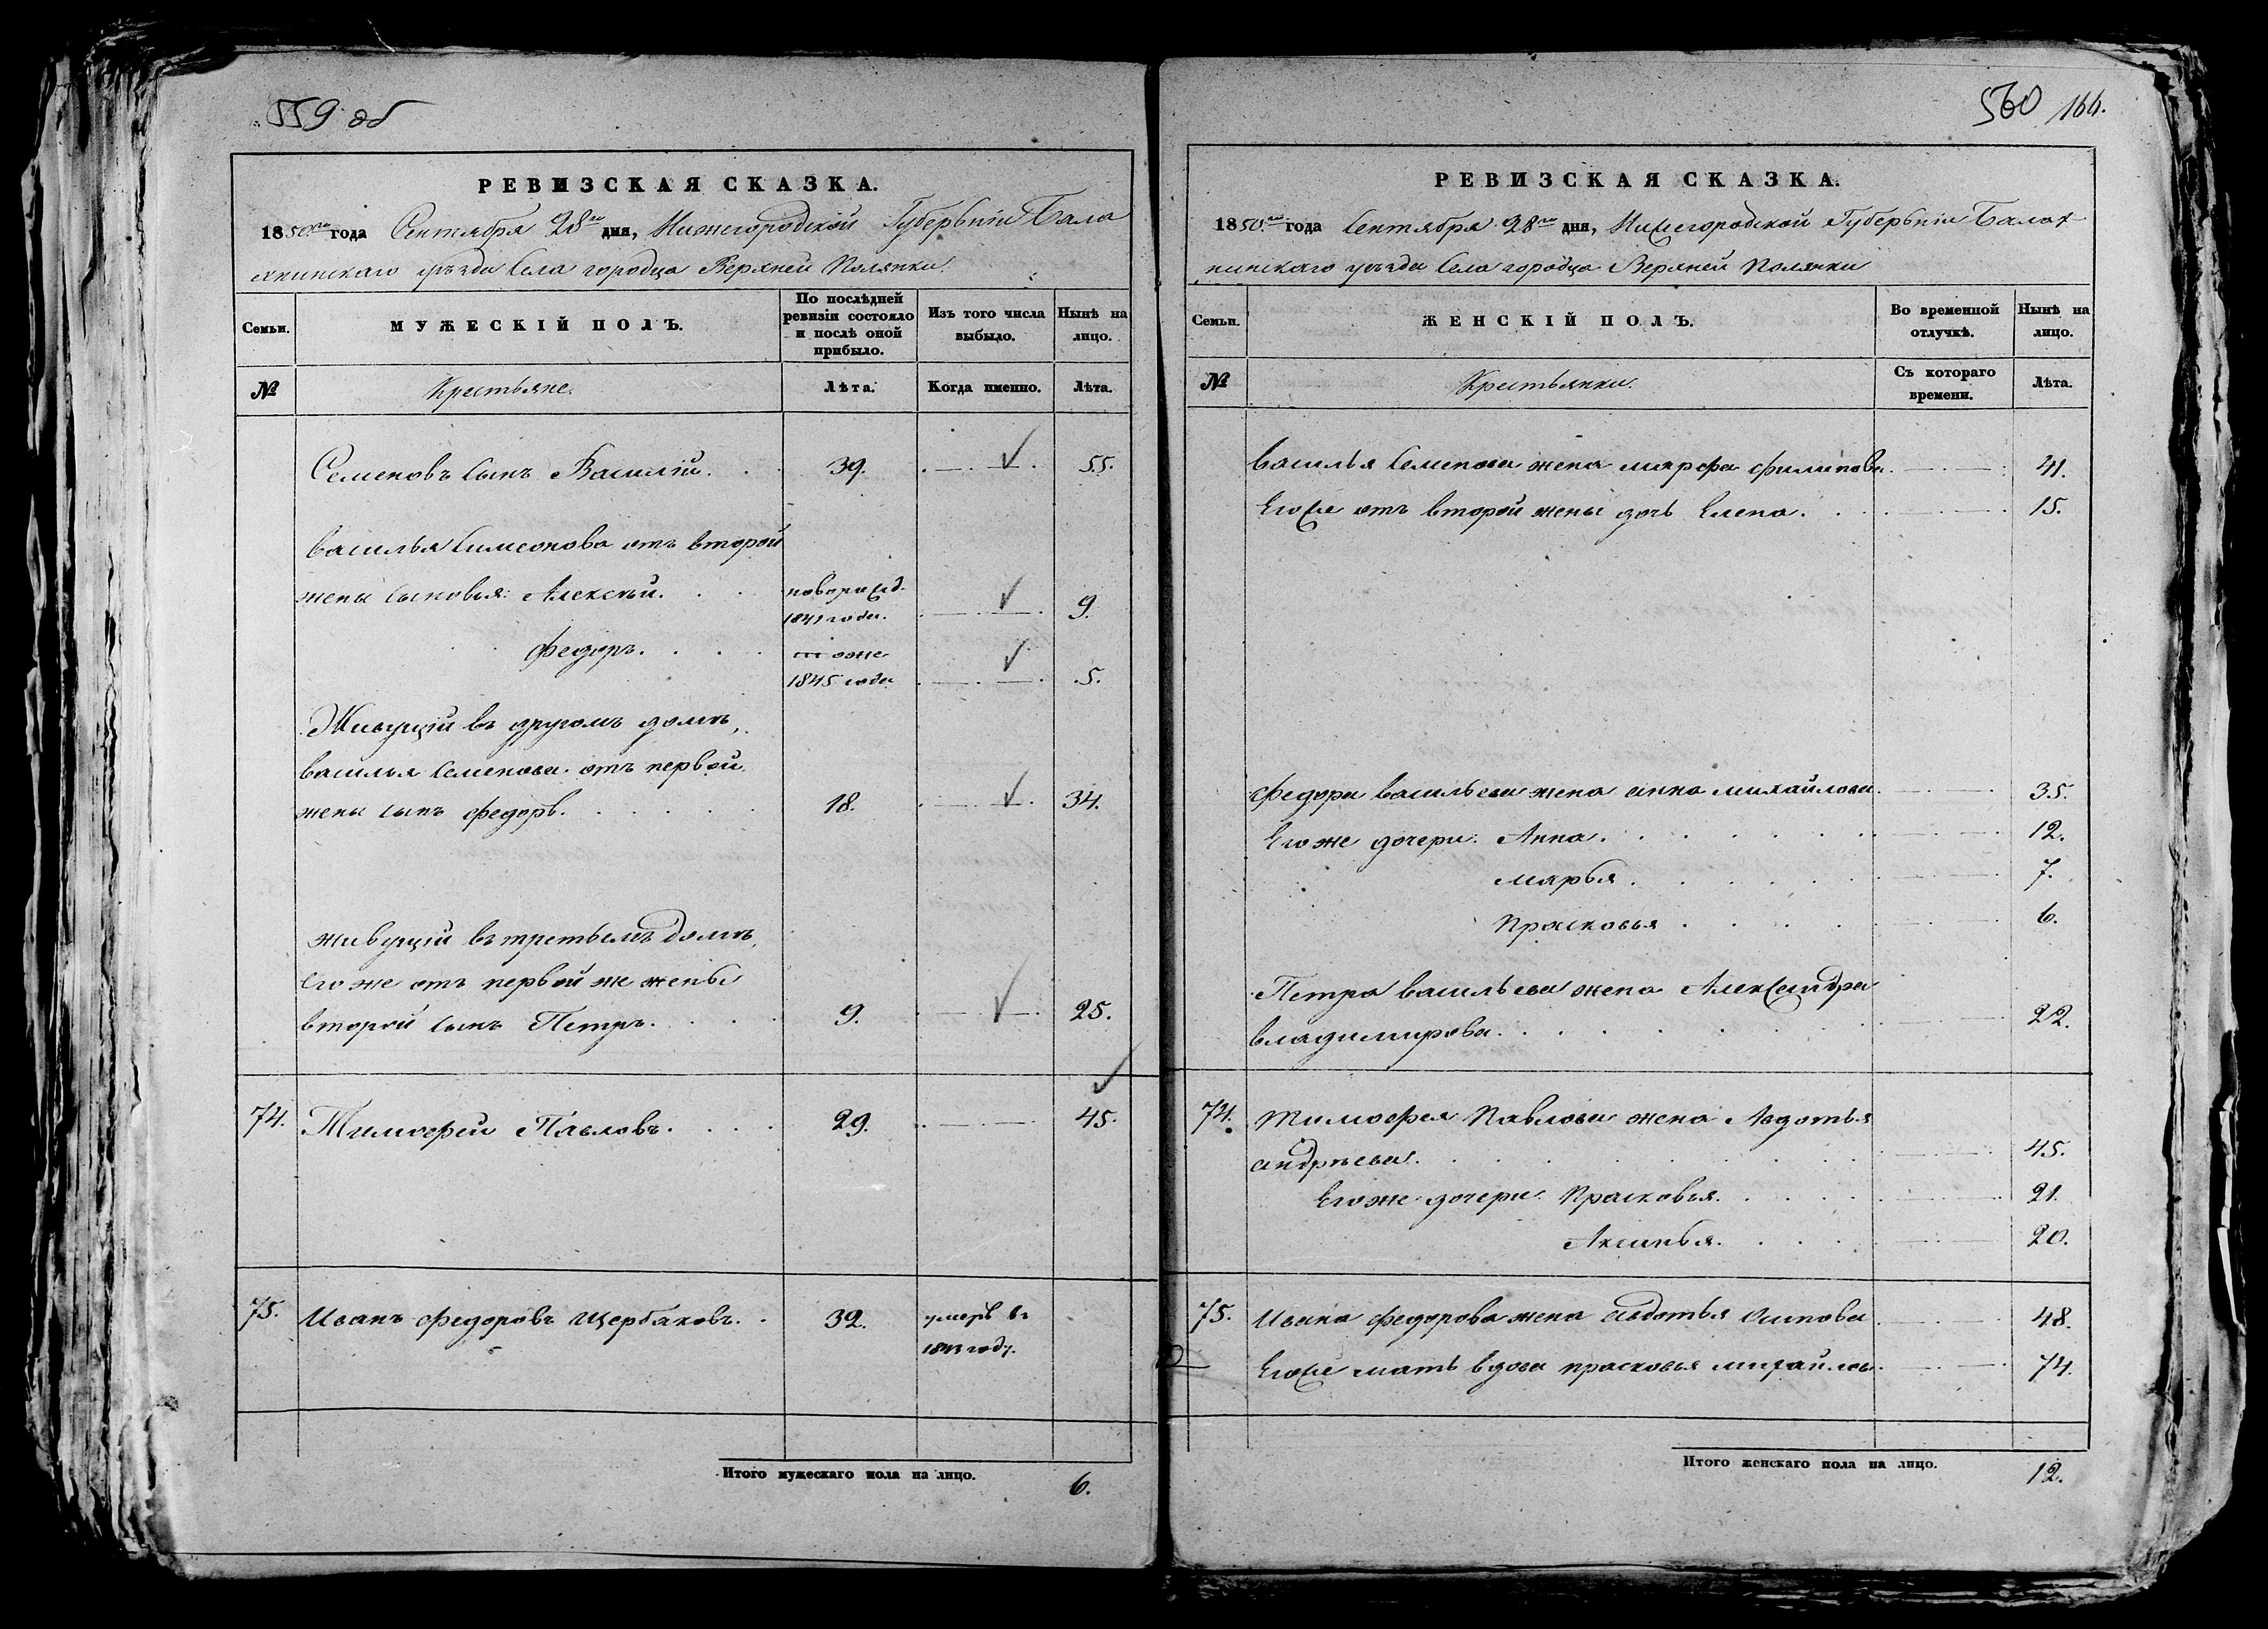 559 об
РЕВИЗСКАЯ СКАЗКА.
1850го года Сентября 28го дня, Нижегородской Губернiи Бала
хнинскаго уѣзда Села городца Верхней Полянки.
Семьи.
МУЖЕСКIЙ ПОЛЪ.
По послѣдней ревизiи состояло и послѣ оной прибыло.
Изъ того числа выбыло.
Нынѣ на лицо.
№
Крестьяне.
Лѣта.
Когда именно.
Лѣта.
Семеновъ сынъ Василiй. 39. 55.
Василья Симеонова отъ второй
жены сыновья: Алексѣй. новорожд. 1841 года. 9.
Федоръ. тоже 1845 года 5.
Живущiй въ другомъ домѣ,
Василья Семенова отъ первой
жены сынъ Федоръ. 18. 34.
Живущiй въ третьемъ домѣ,
его же отъ первой же жены
второй сынъ Петръ. 9. 25.
74. Тимофей Павловъ. 29. 45.
75. Иванъ Федоровъ Щербаковъ. 32. умеръ въ
году.
Итого мужескаго пола на лицо. 6.
560 166.
РЕВИЗСКАЯ СКАЗКА.
1850.го года Сентября 28го дня, Нижегородской Губернiи Балах
нинскаго уѣзда Села городца Верхней Полянки
Семьи.
ЖЕНСКIЙ ПОЛЪ.
Во временной отлучкѣ.
Нынѣ на лицо.
№
Крестьянки.
Съ котораго времени.
Лѣта.
Василья Семенова жена марфа филипова. 41.
Егоже отъ второй жены дочь Елена. 15.
Федора Васильева жена анна михайлова. 35.
Его же дочери: Анна. 12.
марья. 7.
Прасковья 6.
Петра Васильева жена Александра
владимирова. 22.
74. Тимофея Павлова жена Авдотья
андрѣева. 45.
Егоже дочери Прасковья. 21.
Аксинья. 20.
75. Ивана Федорова жена авдотья Осипова 48.
Егоже мать вдова прасковья михайлов. 74.
Итого женскаго пола на лицо. 12.